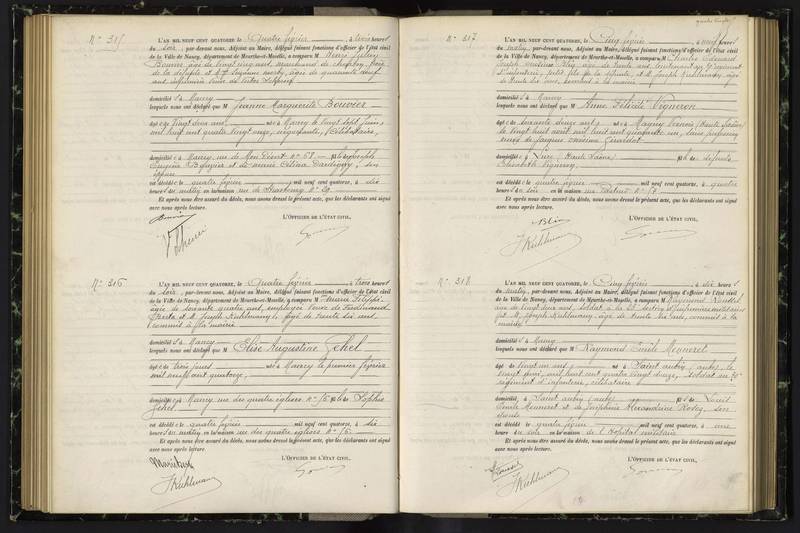 N° 315
L'AN MIL NEUF CENT QUATORZE, le Quatre février, à trois heures
du soir, par-devant nous, Adjoint au Maire, délégué faisant fonctions d'officier de l'état civil
de la Ville de Nancy, département de Meurthe-et-Moselle, a comparu M Henri Julien
Bouvier âgé de vingt cinq ans, marchand de
de la défunte et
domiciliés à Nancy
lesquels nous ont déclaré que M Jeanne Marguerite Bouvier
âgée de vingt deux ans, née à Nancy le vingt sept juin,
mil huit cent quatre vingt onze, célibataire,
domiciliée à Nancy, rue de Mon Désert n° 68 fille de Joseph
Eugène Bouvier et de Marie Célina
est décédée le quatre février mil neuf cent quatorze, à dix
heures du matin en la maison rue de Strasbourg n°
Et après nous être assuré du décès, nous avons dressé le présent acte, que les déclarants ont signé
avec nous après lecture.
L'OFFICIER DE L'ÉTAT CIVIL,
N° 316
L'AN MIL NEUF CENT QUATORZE, le Quatre février, à trois heures
du soir, par-devant nous, Adjoint au Maire, délégué faisant fonctions d'officier de l'état civil
de la Ville de Nancy, département de Meurthe-et-Moselle, a comparu M
âgée de soixante quatre ans, employée veuve de Ferdinand
et M. Joseph Kuhlmann, âgé de trente six ans
commis à la mairie
domiciliés à Nancy
lesquels nous ont déclaré que M Elise Augustine Jehel
âgée de trois jours née à Nancy le premier février
mil neuf cent quatorze,
domiciliée à Nancy rue des quatre églises n° fille de Sophie
Jehel
est décédée le quatre février mil neuf cent quatorze, à dix
heures du matin en la maison rue des quatre églises n°
Et après nous être assuré du décès, nous avons dressé le présent acte, que les déclarants ont signé
avec nous après lecture.
L'OFFICIER DE L'ÉTAT CIVIL,
J Kuhlmann
N° 317
L'AN MIL NEUF CENT QUATORZE, le Cinq février, à neuf heures
du matin, par-devant nous, Adjoint au Maire, délégué faisant fonctions d'officier de l'état civil
de la Ville de Nancy, département de Meurthe-et-Moselle, a comparu M Charles Edouard
Blin, âgé de trente ans, lieutenant au régiment
d'infanterie, petit fils de la défunte, et M. Joseph Kuhlmann, âgé
de trente six ans, commis à la mairie
domiciliés à Nancy
lesquels nous ont déclaré que M Anne Félicité Vigneron
âgée de soixante douze ans, née à Magny Vernois (Haute Saône)
le vingt huit août mil huit cent quarante un, sans profession
veuve de Jacques Girardot
domiciliée à Lure (Haute Saône) fille de défunts
Elisabeth Vigneron
est décédée le quatre février mil neuf cent quatorze, à quatre
heures du soir en la maison rue Pasteur n°
Et après nous être assuré du décès, nous avons dressé le présent acte, que les déclarants ont signé
avec nous après lecture.
L'OFFICIER DE L'ÉTAT CIVIL,
Blin
J Kuhlmann
N° 318
L'AN MIL NEUF CENT QUATORZE, le Cinq février, à dix heures
du matin, par-devant nous, Adjoint au Maire, délégué faisant fonctions d'officier de l'état civil
de la Ville de Nancy, département de Meurthe-et-Moselle, a comparu M Raymond
âgé de vingt deux ans, soldat à la section d'infirmiers militaires
et M. Joseph Kuhlmann âgé de trente six ans, commis à la
mairie
domiciliés à Nancy
lesquels nous ont déclaré que M Raymond Emile Meuneret
âgé de vingt un ans, né à Saint Aubin (Aube) le
vingt mil huit cent quatre vingt douze, soldat au
régiment d'infanterie, célibataire
domicilié à Saint Aubin (Aube) fils de Louis
Emile Meuneret et de Joséphine Alexandrine
est décédé le quatre février mil neuf cent quatorze, à une
heure du soir en la maison de l'Hôpital militaire
Et après nous être assuré du décès, nous avons dressé le présent acte, que les déclarants ont signé
avec nous après lecture.
L'OFFICIER DE L'ÉTAT CIVIL,
J Kuhlmann